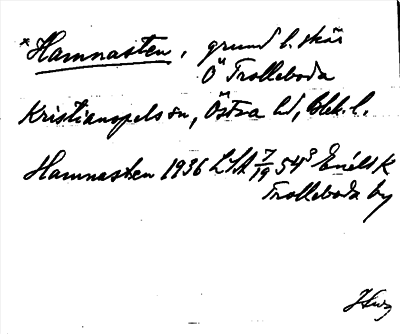 *Hamnasten, grund l. skär
Ö Trolleboda
Kristianopels sn, Östra hd, Blek. l.
Hamnasten 1936 LSA 7/19 54³ Enélsk
Trolleboda by